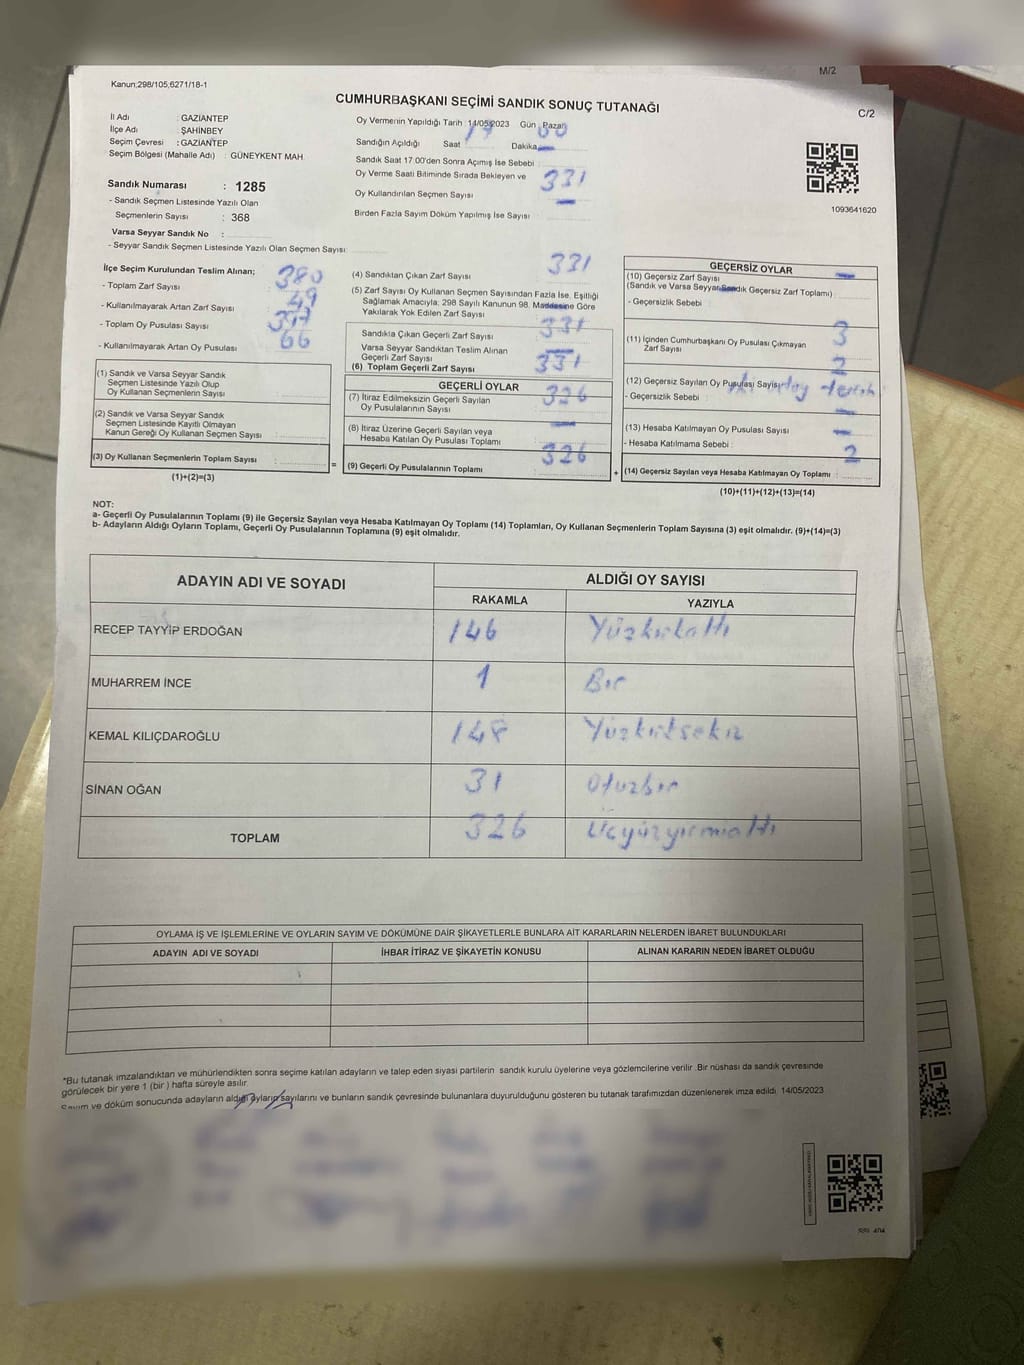 M/2
Kanun:298/105;6271/18-1
CUMHURBAŞKANI SEÇİMİ SANDIK SONUÇ TUTANAĞI
C/2
İl Adı : GAZİANTEP
İlçe Adı : ŞAHİNBEY
Seçim Çevresi : GAZİANTEP
Seçim Bölgesi (Mahalle Adı) : GÜNEYKENT MAH.
Sandık Numarası : 1285
- Sandık Seçmen Listesinde Yazılı Olan
Seçmenlerin Sayısı : 368
Varsa Seyyar Sandık No :
- Seyyar Sandık Seçmen Listesinde Yazılı Olan Seçmen Sayısı:
Oy Vermenin Yapıldığı Tarih : 14/05/2023 Gün : Pazar
Sandığın Açıldığı Saat 17 Dakika 00
Sandık Saat 17:00'den Sonra Açımış İse Sebebi :
Oy Verme Saati Bitiminde Sırada Bekleyen ve
Oy Kullandırılan Seçmen Sayısı 331
Birden Fazla Sayım Döküm Yapılmış İse Sayısı :
1093641620
İlçe Seçim Kurulundan Teslim Alınan;
- Toplam Zarf Sayısı : 380
- Kullanılmayarak Artan Zarf Sayısı : 49
- Toplam Oy Pusulası Sayısı : 397
- Kullanılmayarak Artan Oy Pusulası : 66
(1) Sandık ve Varsa Seyyar Sandık
Seçmen Listesinde Yazılı Olup
Oy Kullanan Seçmenlerin Sayısı :
(2) Sandık ve Varsa Seyyar Sandık
Seçmen Listesinde Kayıtlı Olmayan
Kanun Gereği Oy Kullanan Seçmen Sayısı :
(3) Oy Kullanan Seçmenlerin Toplam Sayısı :
(1)+(2)=(3)
(4) Sandıktan Çıkan Zarf Sayısı : 331
(5) Zarf Sayısı Oy Kullanan Seçmen Sayısından Fazla İse, Eşitliği
Sağlamak Amacıyla, 298 Sayılı Kanunun 98. Maddesine Göre
Yakılarak Yok Edilen Zarf Sayısı :
Sandıkla Çıkan Geçerli Zarf Sayısı : 331
Varsa Seyyar Sandıktan Teslim Alınan
Geçerli Zarf Sayısı
(6) Toplam Geçerli Zarf Sayısı : 331
GEÇERLİ OYLAR
(7) İtiraz Edilmeksizin Geçerli Sayılan
Oy Pusulalarının Sayısı : 326
(8) İtiraz Üzerine Geçerli Sayılan veya
Hesaba Katılan Oy Pusulası Toplamı :
(9) Geçerli Oy Pusulalarının Toplamı : 326
GEÇERSİZ OYLAR
(10) Geçersiz Zarf Sayısı
(Sandık ve Varsa Seyyar Sandık Geçersiz Zarf Toplamı) :
- Geçersizlik Sebebi :
(11) İçinden Cumhurbaşkanı Oy Pusulası Çıkmayan
Zarf Sayısı : 3
(12) Geçersiz Sayılan Oy Pusulası Sayısı 2
- Geçersizlik Sebebi :
(13) Hesaba Katılmayan Oy Pusulası Sayısı :
- Hesaba Katılmama Sebebi :
(14) Geçersiz Sayılan veya Hesaba Katılmayan Oy Toplamı : 2
(10)+(11)+(12)+(13)=(14)
NOT:
a- Geçerli Oy Pusulalarının Toplamı (9) ile Geçersiz Sayılan veya Hesaba Katılmayan Oy Toplamı (14) Toplamları, Oy Kullanan Seçmenlerin Toplam Sayısına (3) eşit olmalıdır. (9)+(14)=(3)
b- Adayların Aldığı Oyların Toplamı, Geçerli Oy Pusulalarının Toplamına (9) eşit olmalıdır.
ADAYIN ADI VE SOYADI
ALDIĞI OY SAYISI
RAKAMLA YAZIYLA
RECEP TAYYİP ERDOĞAN 146 Yüzkırkaltı
MUHARREM İNCE 1 Bir
KEMAL KILIÇDAROĞLU 148 Yüzkırksekiz
SİNAN OĞAN 31 Otuzbir
TOPLAM 326 Üçyüzyirmialtı
OYLAMA İŞ VE İŞLEMLERİNE VE OYLARIN SAYIM VE DÖKÜMÜNE DAİR ŞİKAYETLERLE BUNLARA AİT KARARLARIN NELERDEN İBARET BULUNDUKLARI
ADAYIN ADI VE SOYADI İHBAR İTİRAZ VE ŞİKAYETİN KONUSU ALINAN KARARIN NEDEN İBARET OLDUĞU
*Bu tutanak imzalandıktan ve mühürlendikten sonra seçime katılan adayların ve talep eden siyasi partilerin sandık kurulu üyelerine veya gözlemcilerine verilir. Bir nüshası da sandık çevresinde
görülecek bir yere 1 (bir ) hafta süreyle asılır.
Sayım ve döküm sonucunda adayların aldığı oyların sayılarını ve bunların sandık çevresinde bulunanlara duyurulduğunu gösteren bu tutanak tarafımızdan düzenlenerek imza edildi 14/05/2023